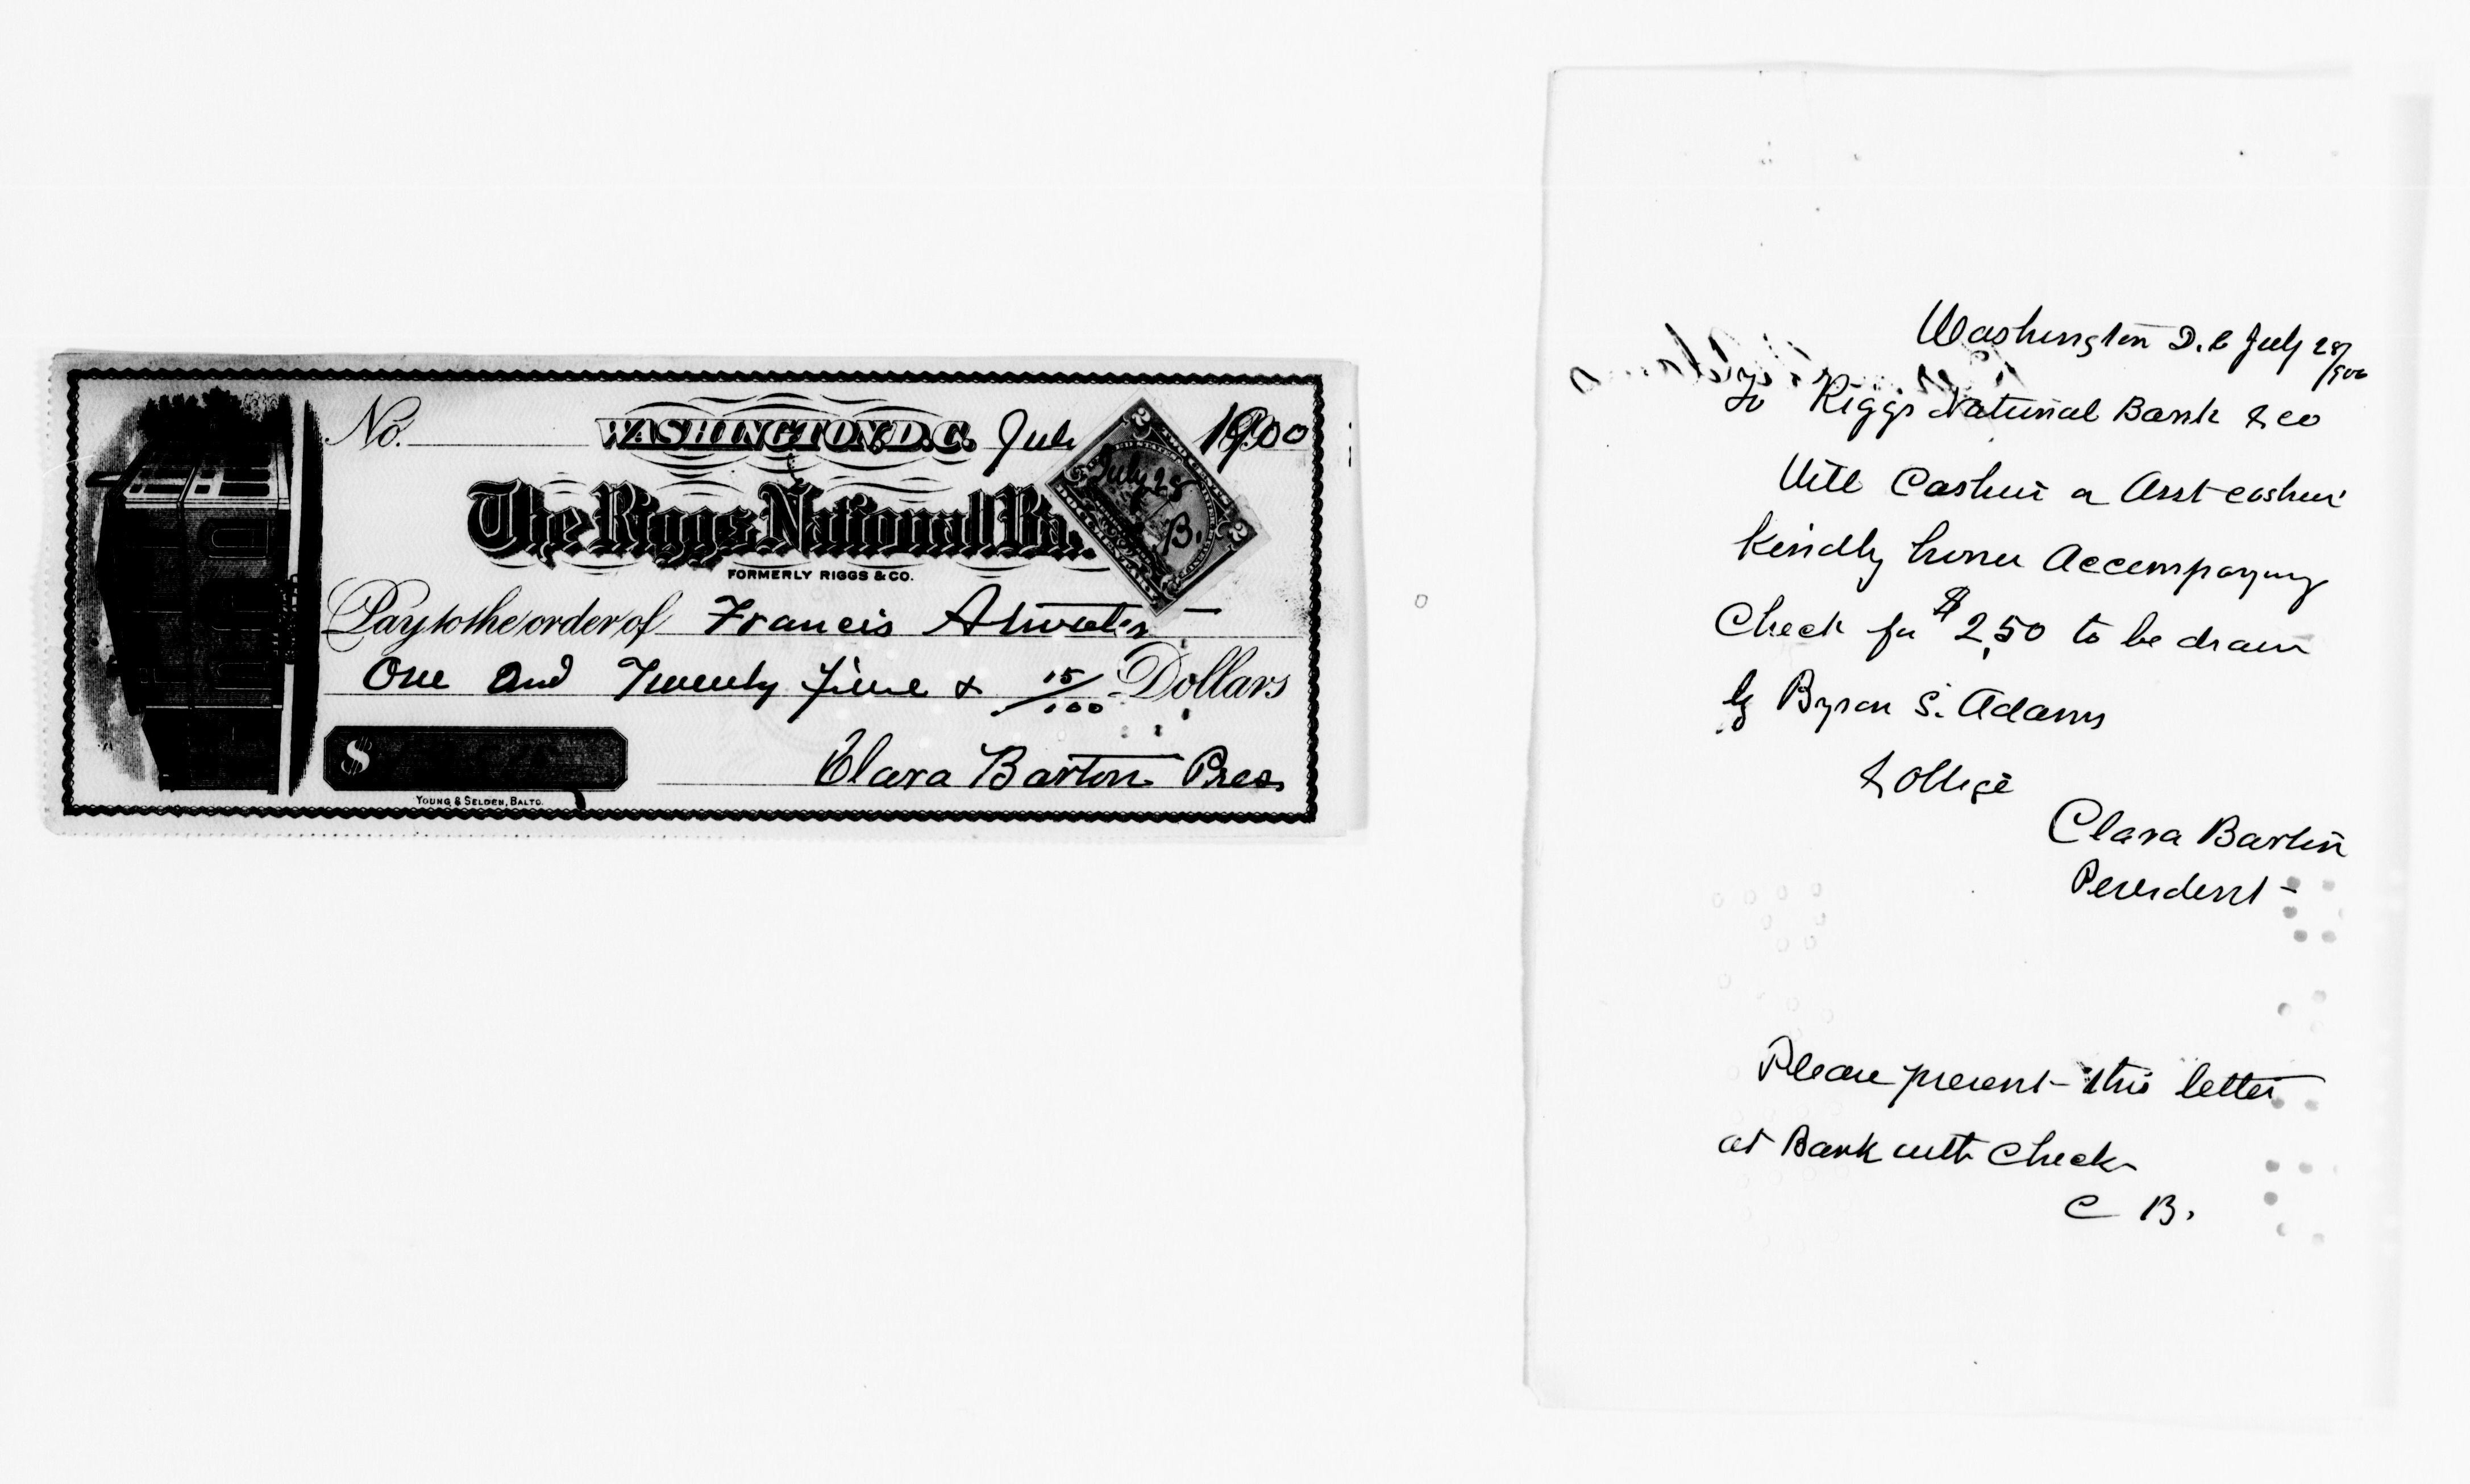 No. WASHINGTON, D.C. July 1900
July 25
B.
The Riggs National Ba
FORMERLY RIGGS & CO.
Pay to the order of Francis Atwater
One and Twenty five & 15/100 Dollars
$
Clara Barton Pres.
YOUNG & SELDEN, BALTO.
Washington D.C July 28/900
To Riggs National Bank & co
Will Cashier or Asst cashier
Kindly honor Accompanying
Check for $2,50 to be drawn
by Byron S. Adams
& Oblige
Clara Barton
President
Please present this letter
at Bank with Check
C B.